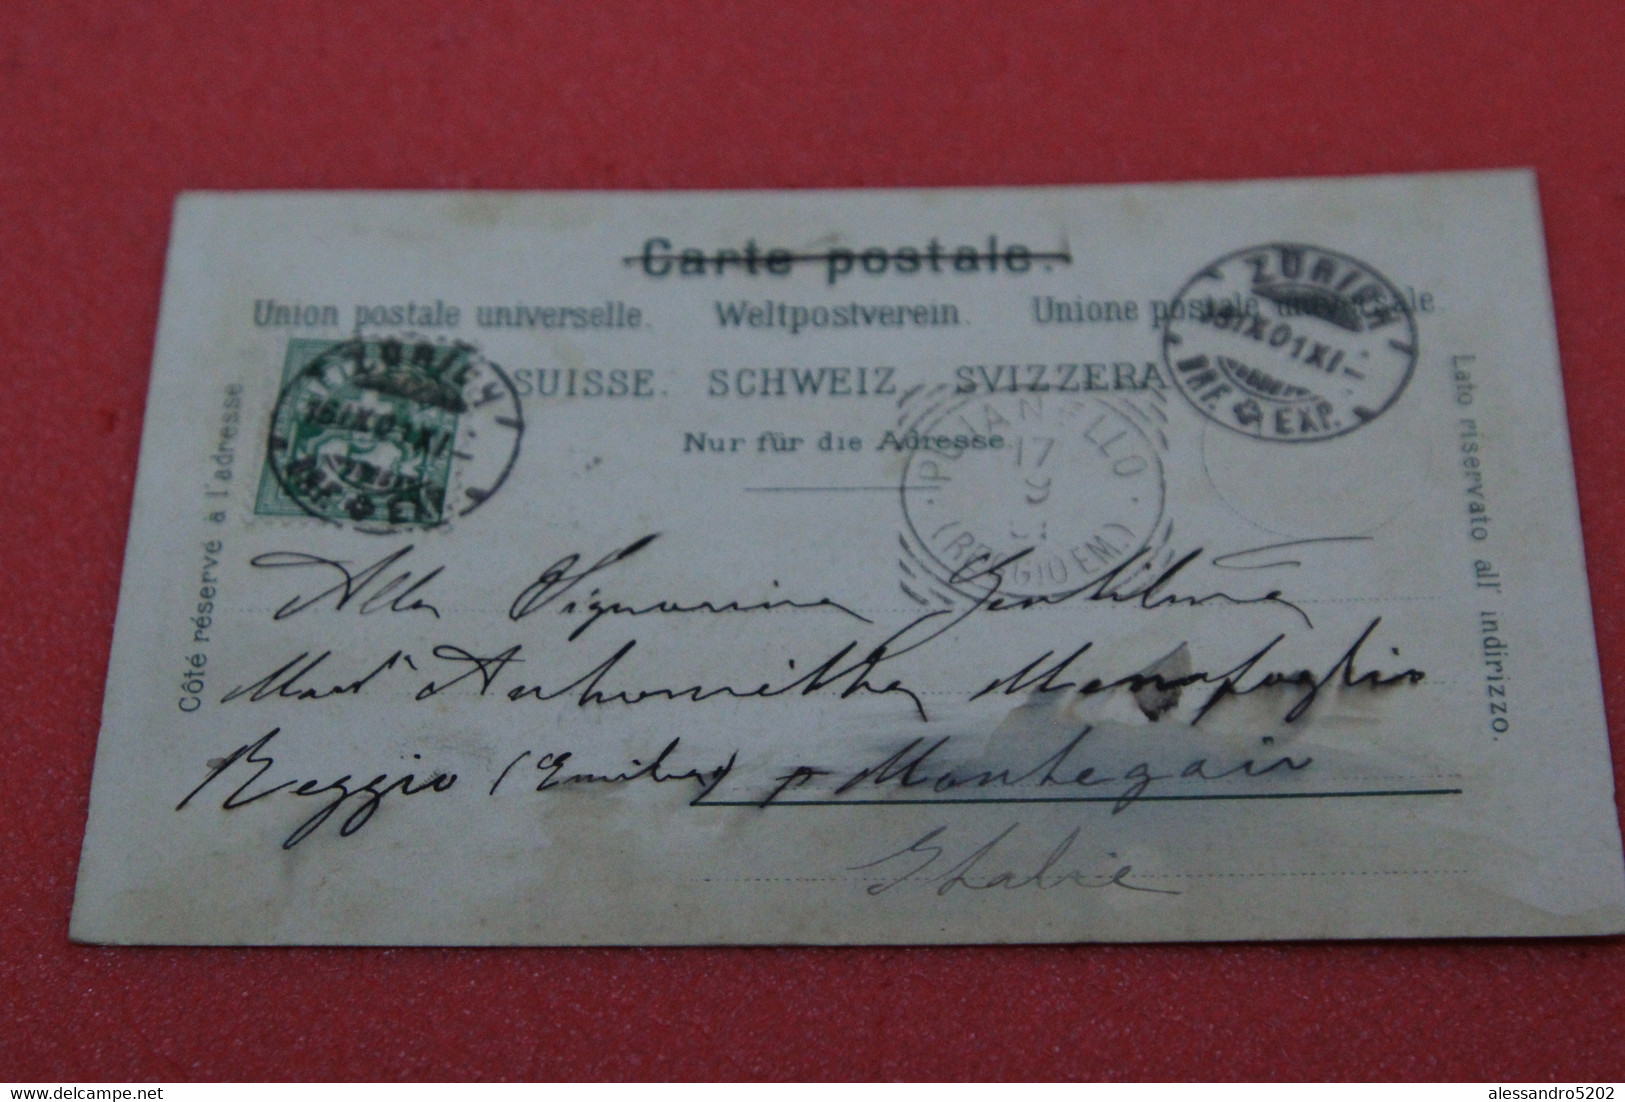 Carte postale.
Union postale universelle. Weltpostverein. Unione postale universale.
SUISSE. SCHWEIZ. SVIZZERA
Nur für die Adresse.
Côté réservé à l'adresse.
Lato riservato all' indirizzo.
ZÜRICH
16 IX 01 XI
BRF. EXP.
ZÜRICH
16 IX 01 XI
BRF. EXP.
PUIANELLO
17
(REGGIO EM.)
Alla Signorina Gentilma
Antonietta Menafoglio
Reggio (Emilia) p Montegaio
Italie
alessandro5202